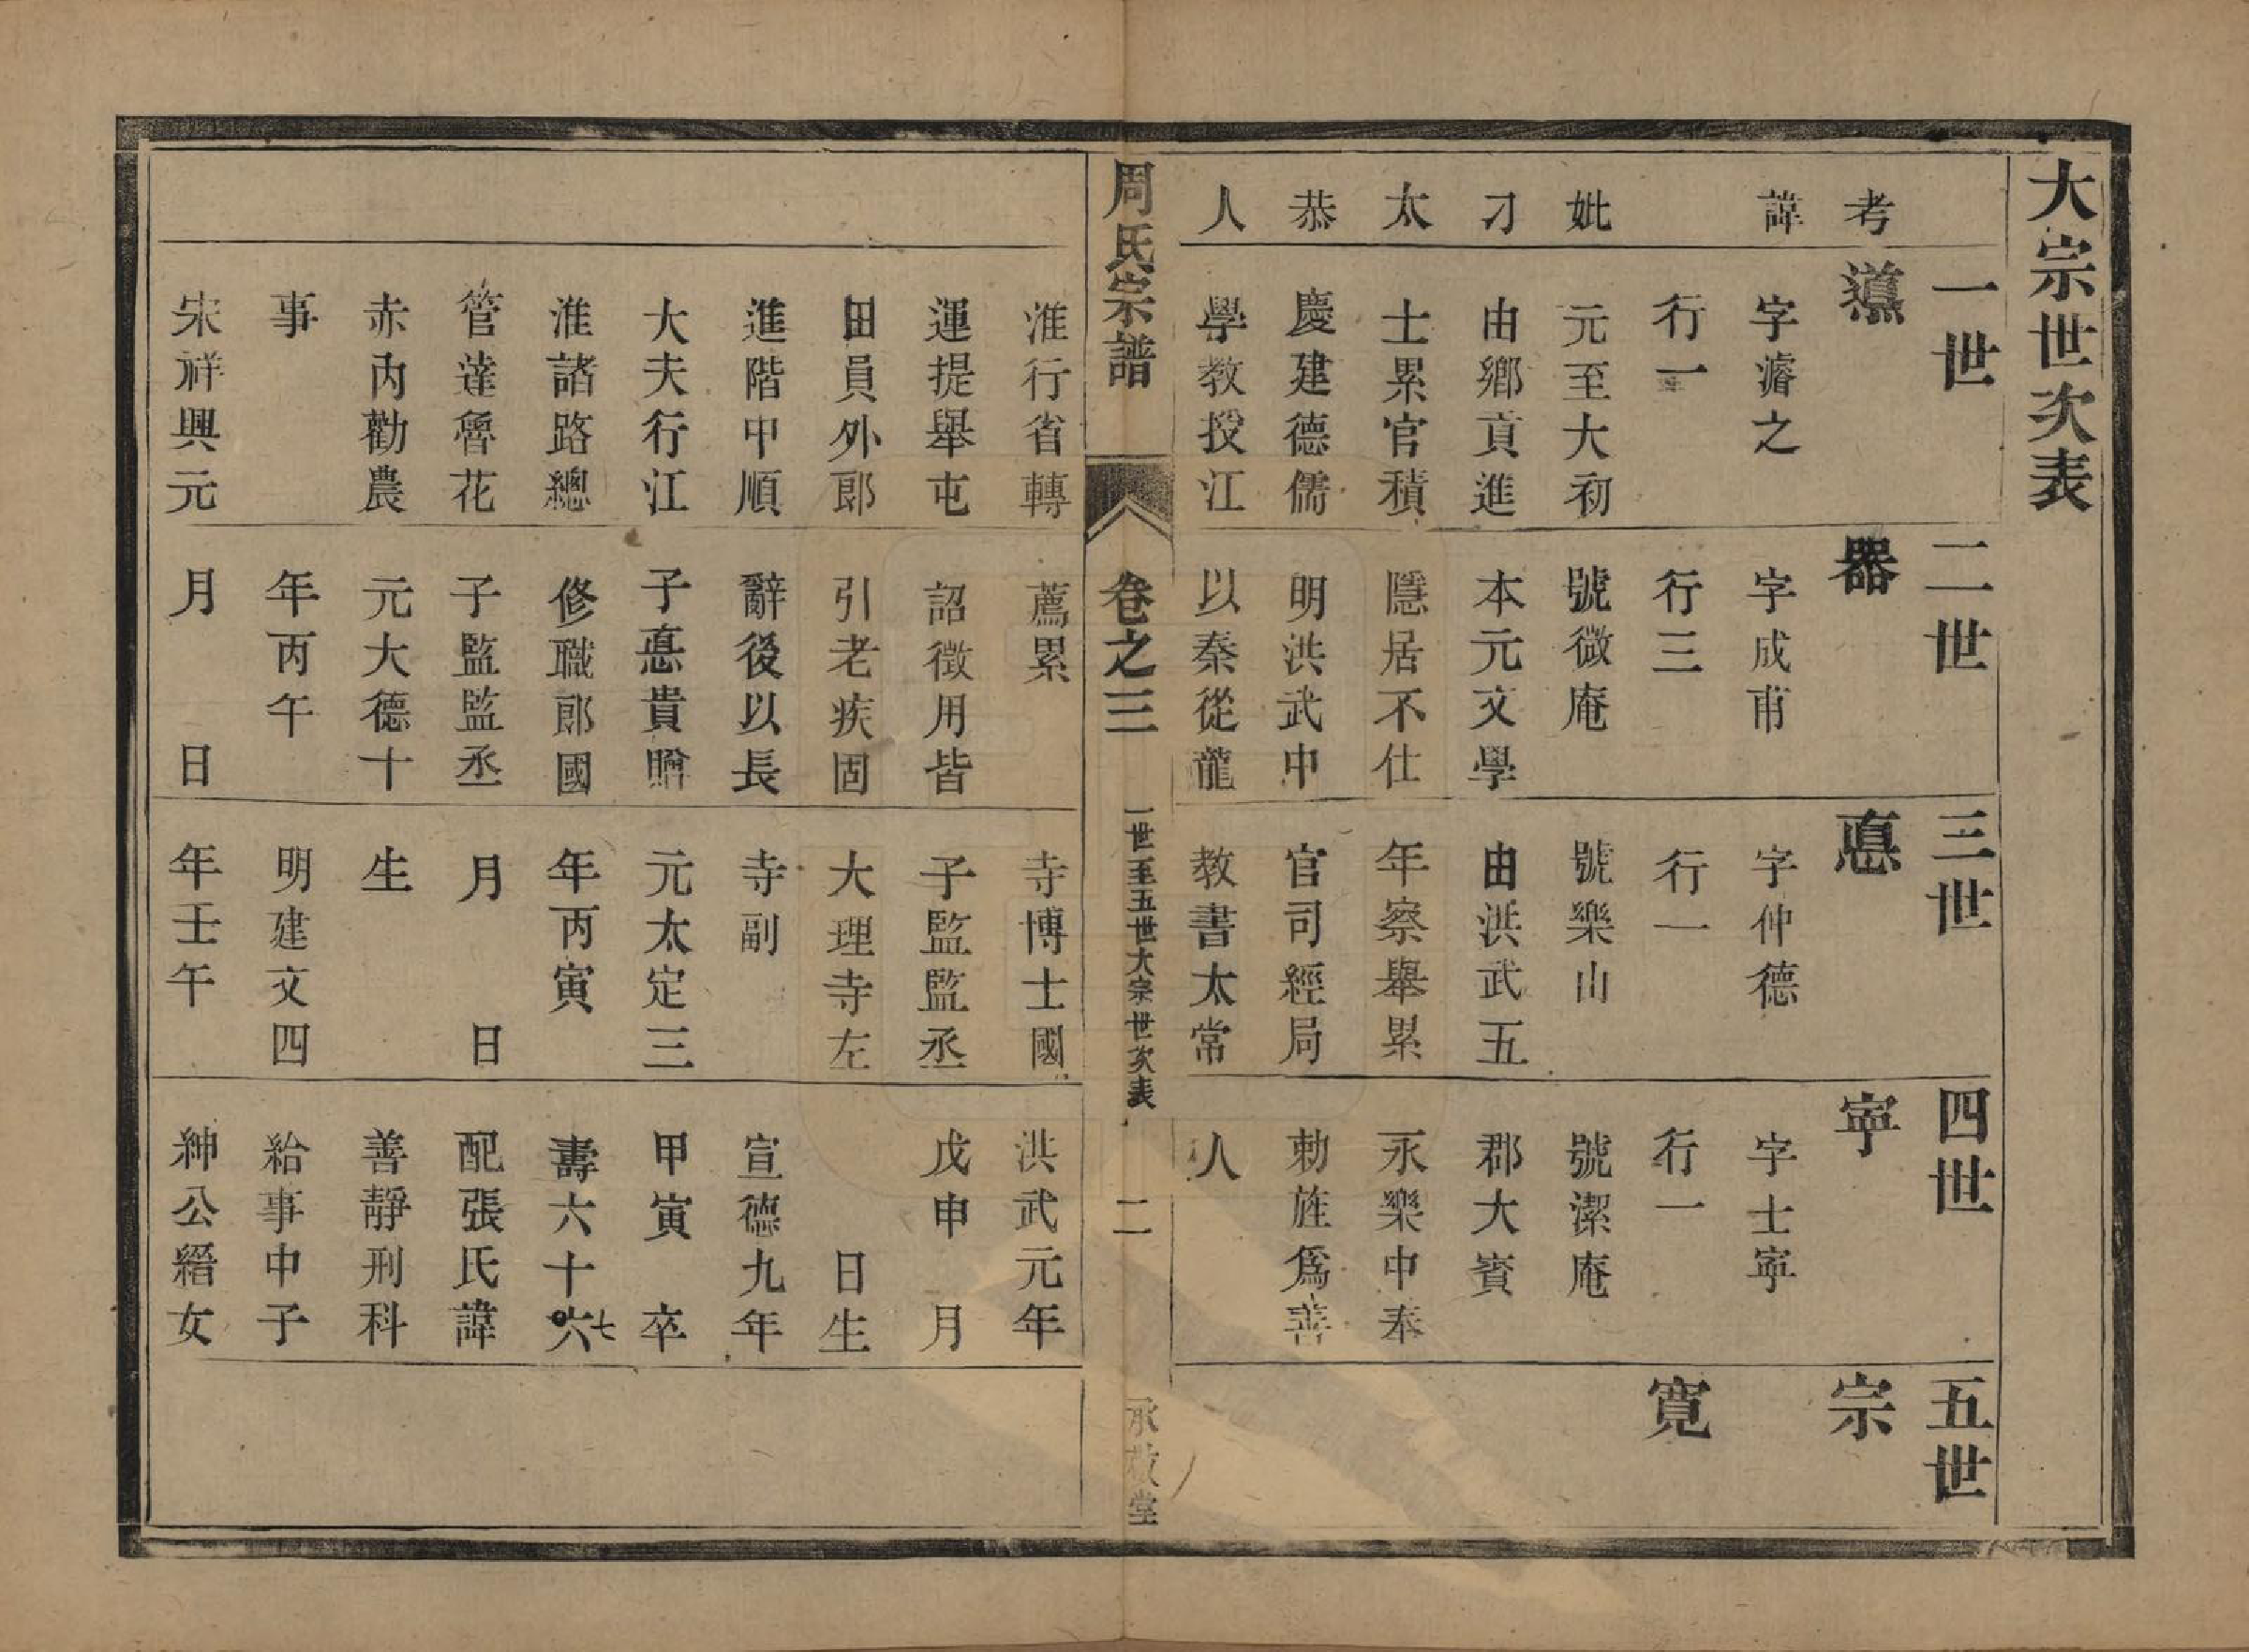 大宗世次表
考
諱
妣
刁
太
恭
人
一世
字濬之
行一
元至大初
由鄉貢進
士累官積
慶建德儒
學教授江
二世
器
字成甫
行三
號微庵
本元文學
隱居不仕
明洪武中
以秦從龍
三世
悳
字仲德
行一
號樂山
由洪武五
年察舉累
官司經局
教書太常
四世
寧
字士寧
行一
號潔庵
郡大賓
永樂中奉
勅旌爲善
人
五世
宗
寬
周氏宗譜
卷之三
一世至五世大宗世次表
二
承敬堂
淮行省轉
運提舉屯
田員外郎
進階中順
大夫行江
淮諸路總
管達魯花
赤內勸農
事
宋祥興元
薦累
詔徵用皆
引老疾固
辭後以長
子悳貴贈
修職郎國
子監監丞
元大德十
年丙午
月 日
寺博士國
子監監丞
大理寺左
寺副
元太定三
年丙寅
月 日
生
明建文四
年壬午
洪武元年
戊申 月
日生
宣德九年
甲寅 卒
壽六十六七
配張氏諱
善靜刑科
給事中子
紳公縉女